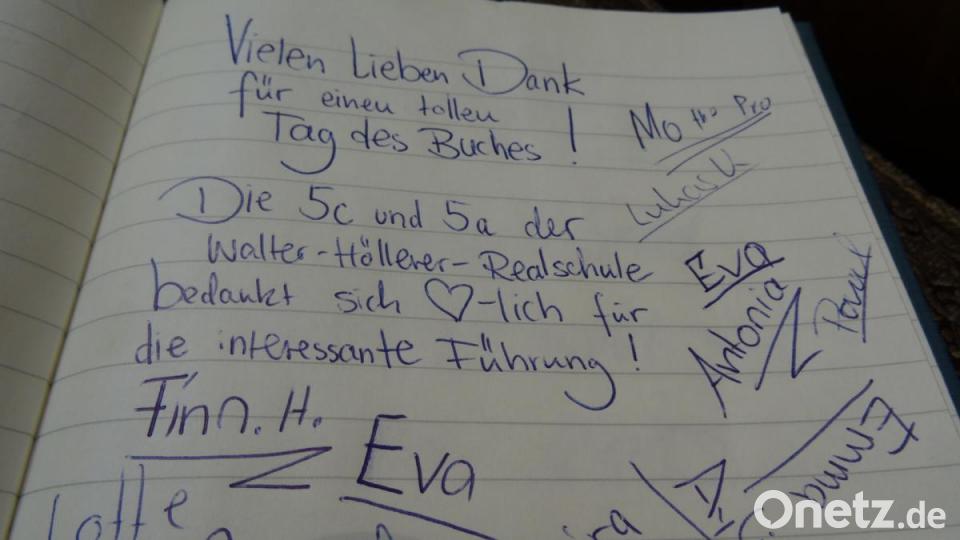 Vielen Lieben Dank
für einen tollen
Tag des Buches!
Mo the Pro
Lukas V.
Die 5c und 5a der
Walter-Höllerer-Realschule
bedankt sich ♡-lich für
die interessante Führung!
Eva
Antonia
Finn. H.
Eva
Lotte
Emma
Onetz.de